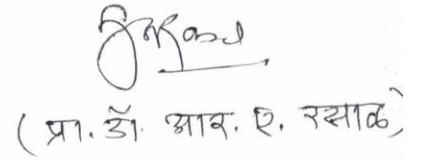 (प्रा. डॉ. आर. ए. रसाळ)